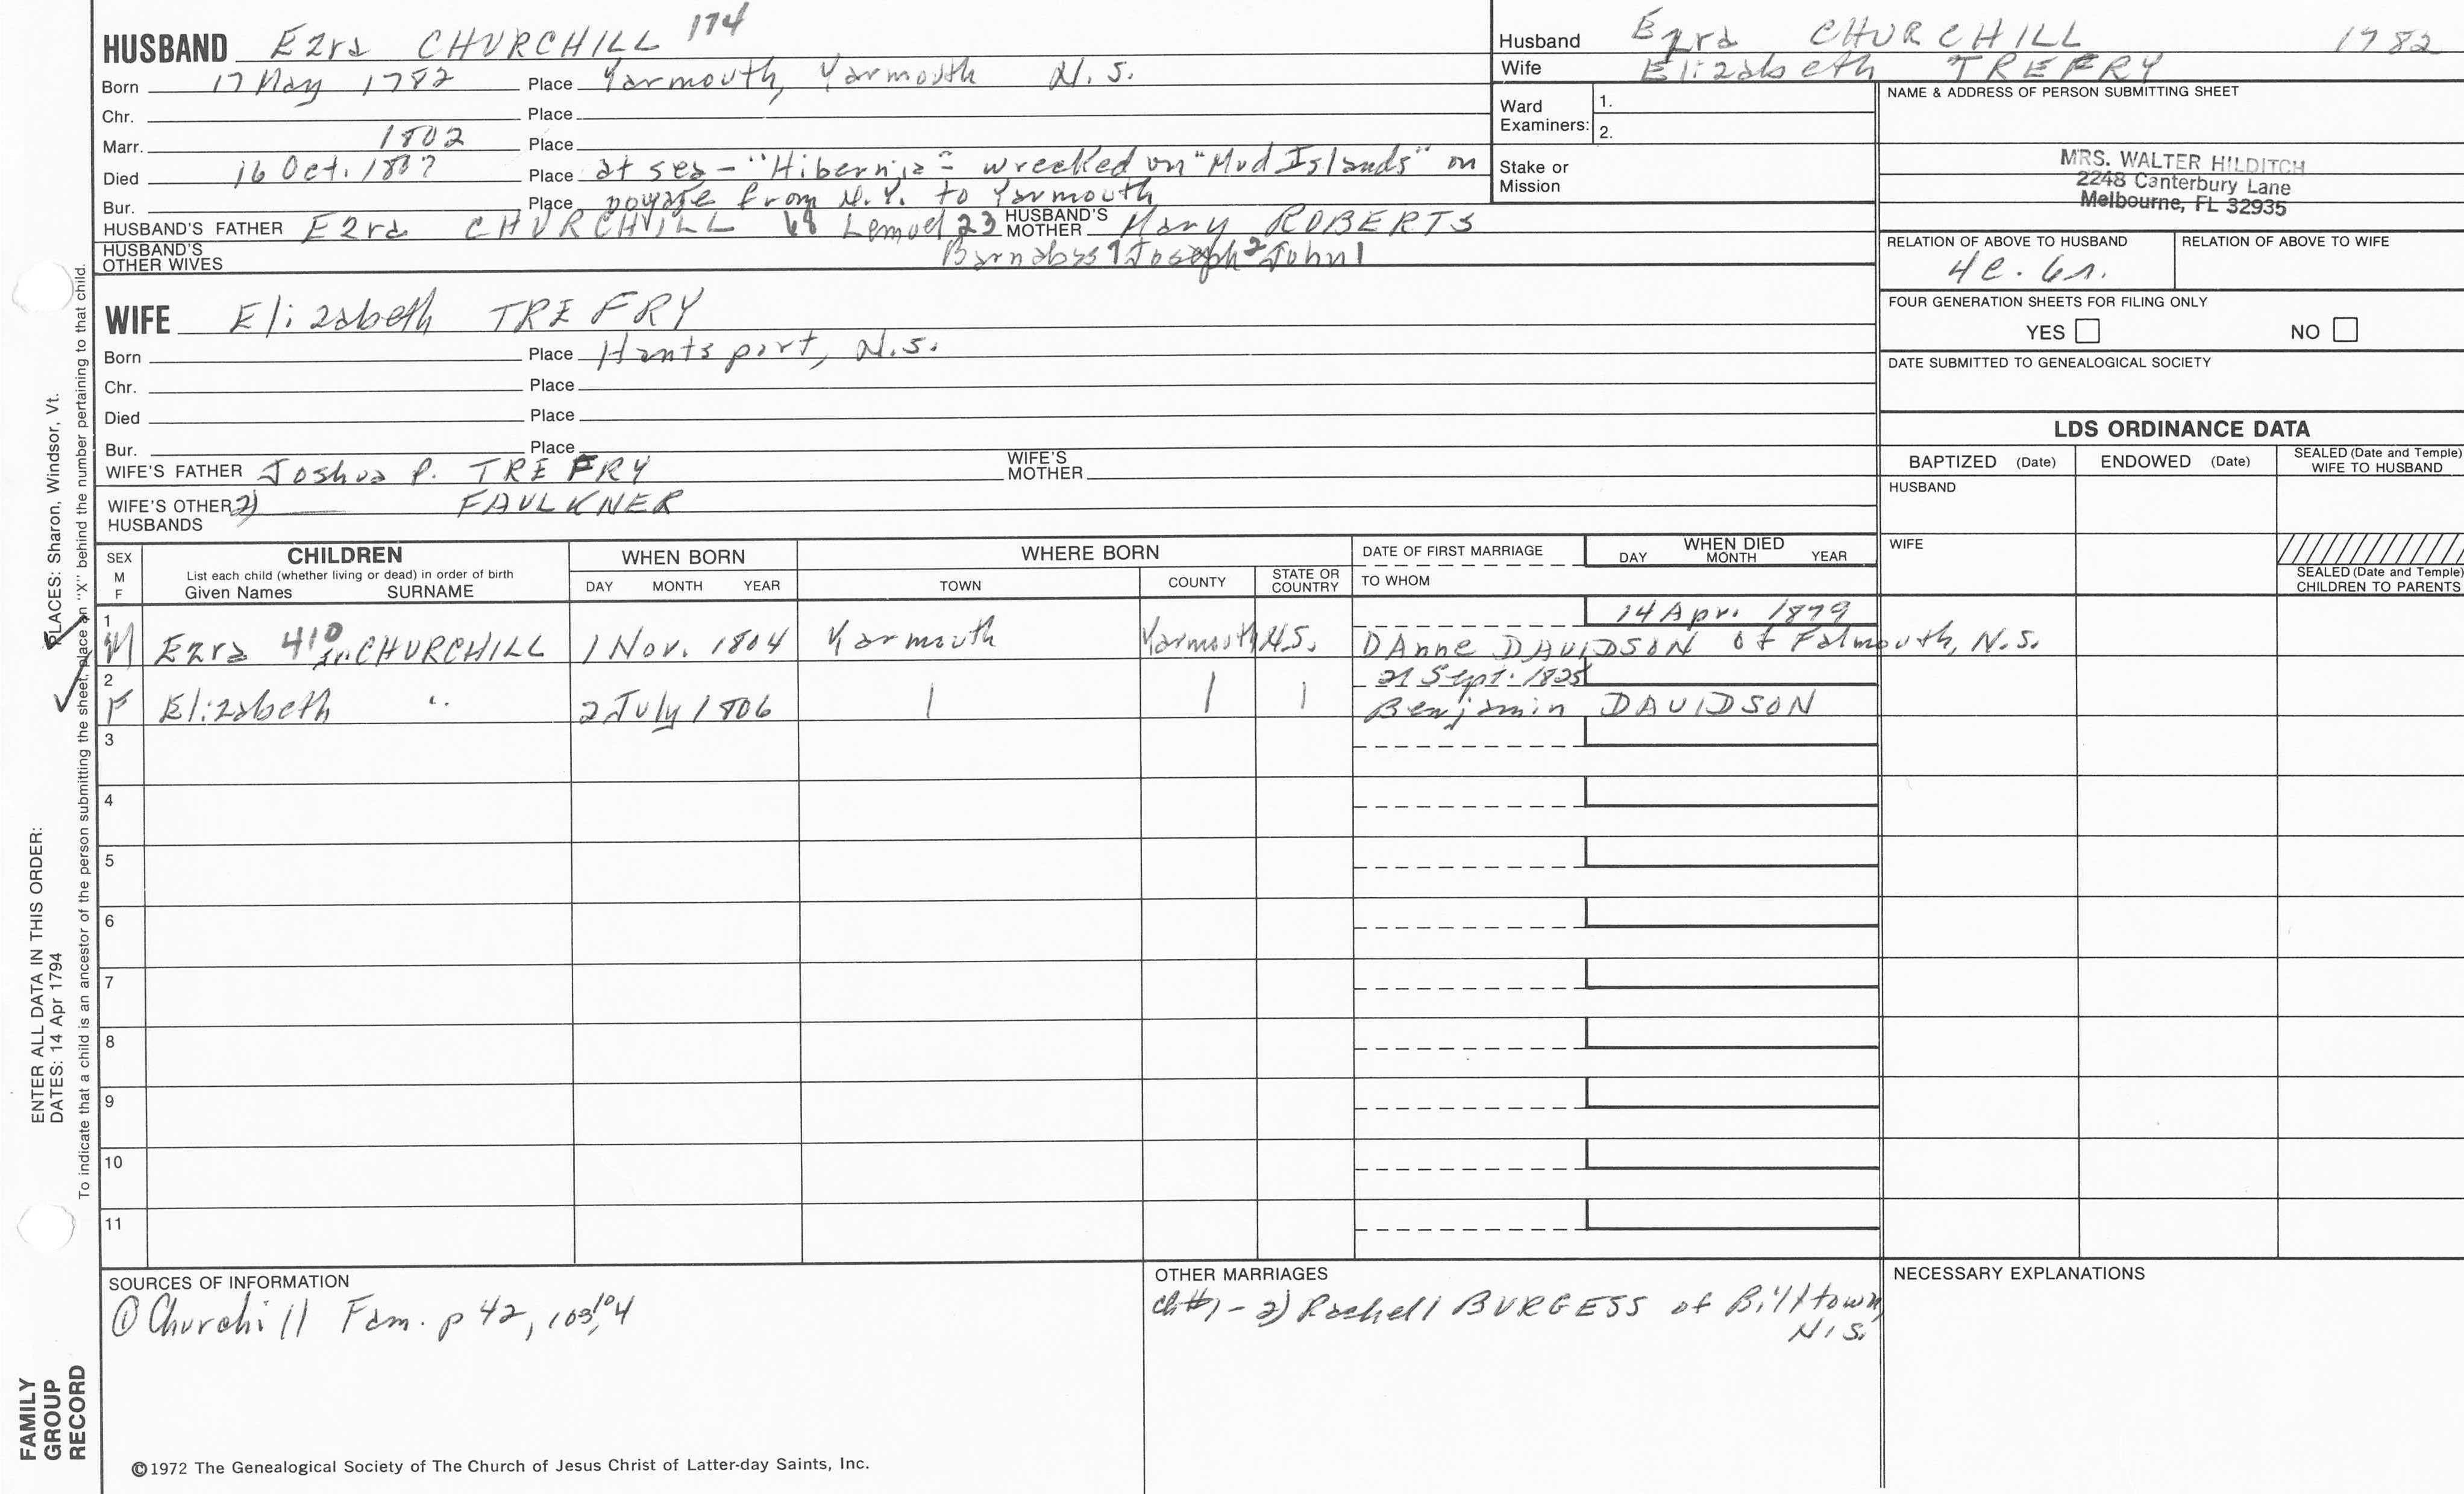 HUSBAND Ezra CHURCHILL 174
Born 17 May 1782 Place Yarmouth, Yarmouth N.S.
Chr. Place
Marr. 1802 Place
Died 16 Oct. 1807 Place at sea - "Hibernia" - wrecked on "Mud Islands" on
Bur. Place voyage from N.Y. to Yarmouth
HUSBAND'S FATHER Ezra CHURCHILL 68 Lemuel 23 HUSBAND'S MOTHER Mary ROBERTS
HUSBAND'S OTHER WIVES Barnabas 7 Joseph 2 John 1
WIFE Elizabeth TREFRY
Born Place Hantsport, N.S.
Chr. Place
Died Place
Bur. Place
WIFE'S FATHER Joshua P. TREFRY WIFE'S MOTHER
WIFE'S OTHER HUSBANDS 2) FAULKNER
Husband Ezra CHURCHILL 1782
Wife Elizabeth TREFRY
Ward Examiners: 1.
2.
Stake or Mission
NAME & ADDRESS OF PERSON SUBMITTING SHEET
MRS. WALTER HILDITCH
2248 Canterbury Lane
Melbourne, FL 32935
RELATION OF ABOVE TO HUSBAND RELATION OF ABOVE TO WIFE
4c. 6r.
FOUR GENERATION SHEETS FOR FILING ONLY
YES NO
DATE SUBMITTED TO GENEALOGICAL SOCIETY
LDS ORDINANCE DATA
BAPTIZED (Date) ENDOWED (Date) SEALED (Date and Temple) WIFE TO HUSBAND
HUSBAND
WIFE
SEALED (Date and Temple) CHILDREN TO PARENTS
SEX M F CHILDREN WHEN BORN WHERE BORN DATE OF FIRST MARRIAGE WHEN DIED
List each child (whether living or dead) in order of birth DAY MONTH YEAR
Given Names SURNAME DAY MONTH YEAR TOWN COUNTY STATE OR COUNTRY TO WHOM
1 14 Apr. 1879
M Ezra 410 Jr. CHURCHILL 1 Nov. 1804 Yarmouth Yarmouth N.S. 1) Anne DAVIDSON of Falmouth, N.S.
2 21 Sept. 1825
F Elizabeth " 2 July 1806 | | | Benjamin DAVIDSON
3
4
5
6
7
8
9
10
11
SOURCES OF INFORMATION
① Churchill Fam. p 42, 103, 104
OTHER MARRIAGES
ch #1 - 2) Rachell BURGESS of Billtown,
N.S.
NECESSARY EXPLANATIONS
©1972 The Genealogical Society of The Church of Jesus Christ of Latter-day Saints, Inc.
FAMILY
GROUP
RECORD
ENTER ALL DATA IN THIS ORDER:
DATES: 14 Apr 1794 PLACES: Sharon, Windsor, Vt.
To indicate that a child is an ancestor of the person submitting the sheet, place an "X" behind the number pertaining to that child.